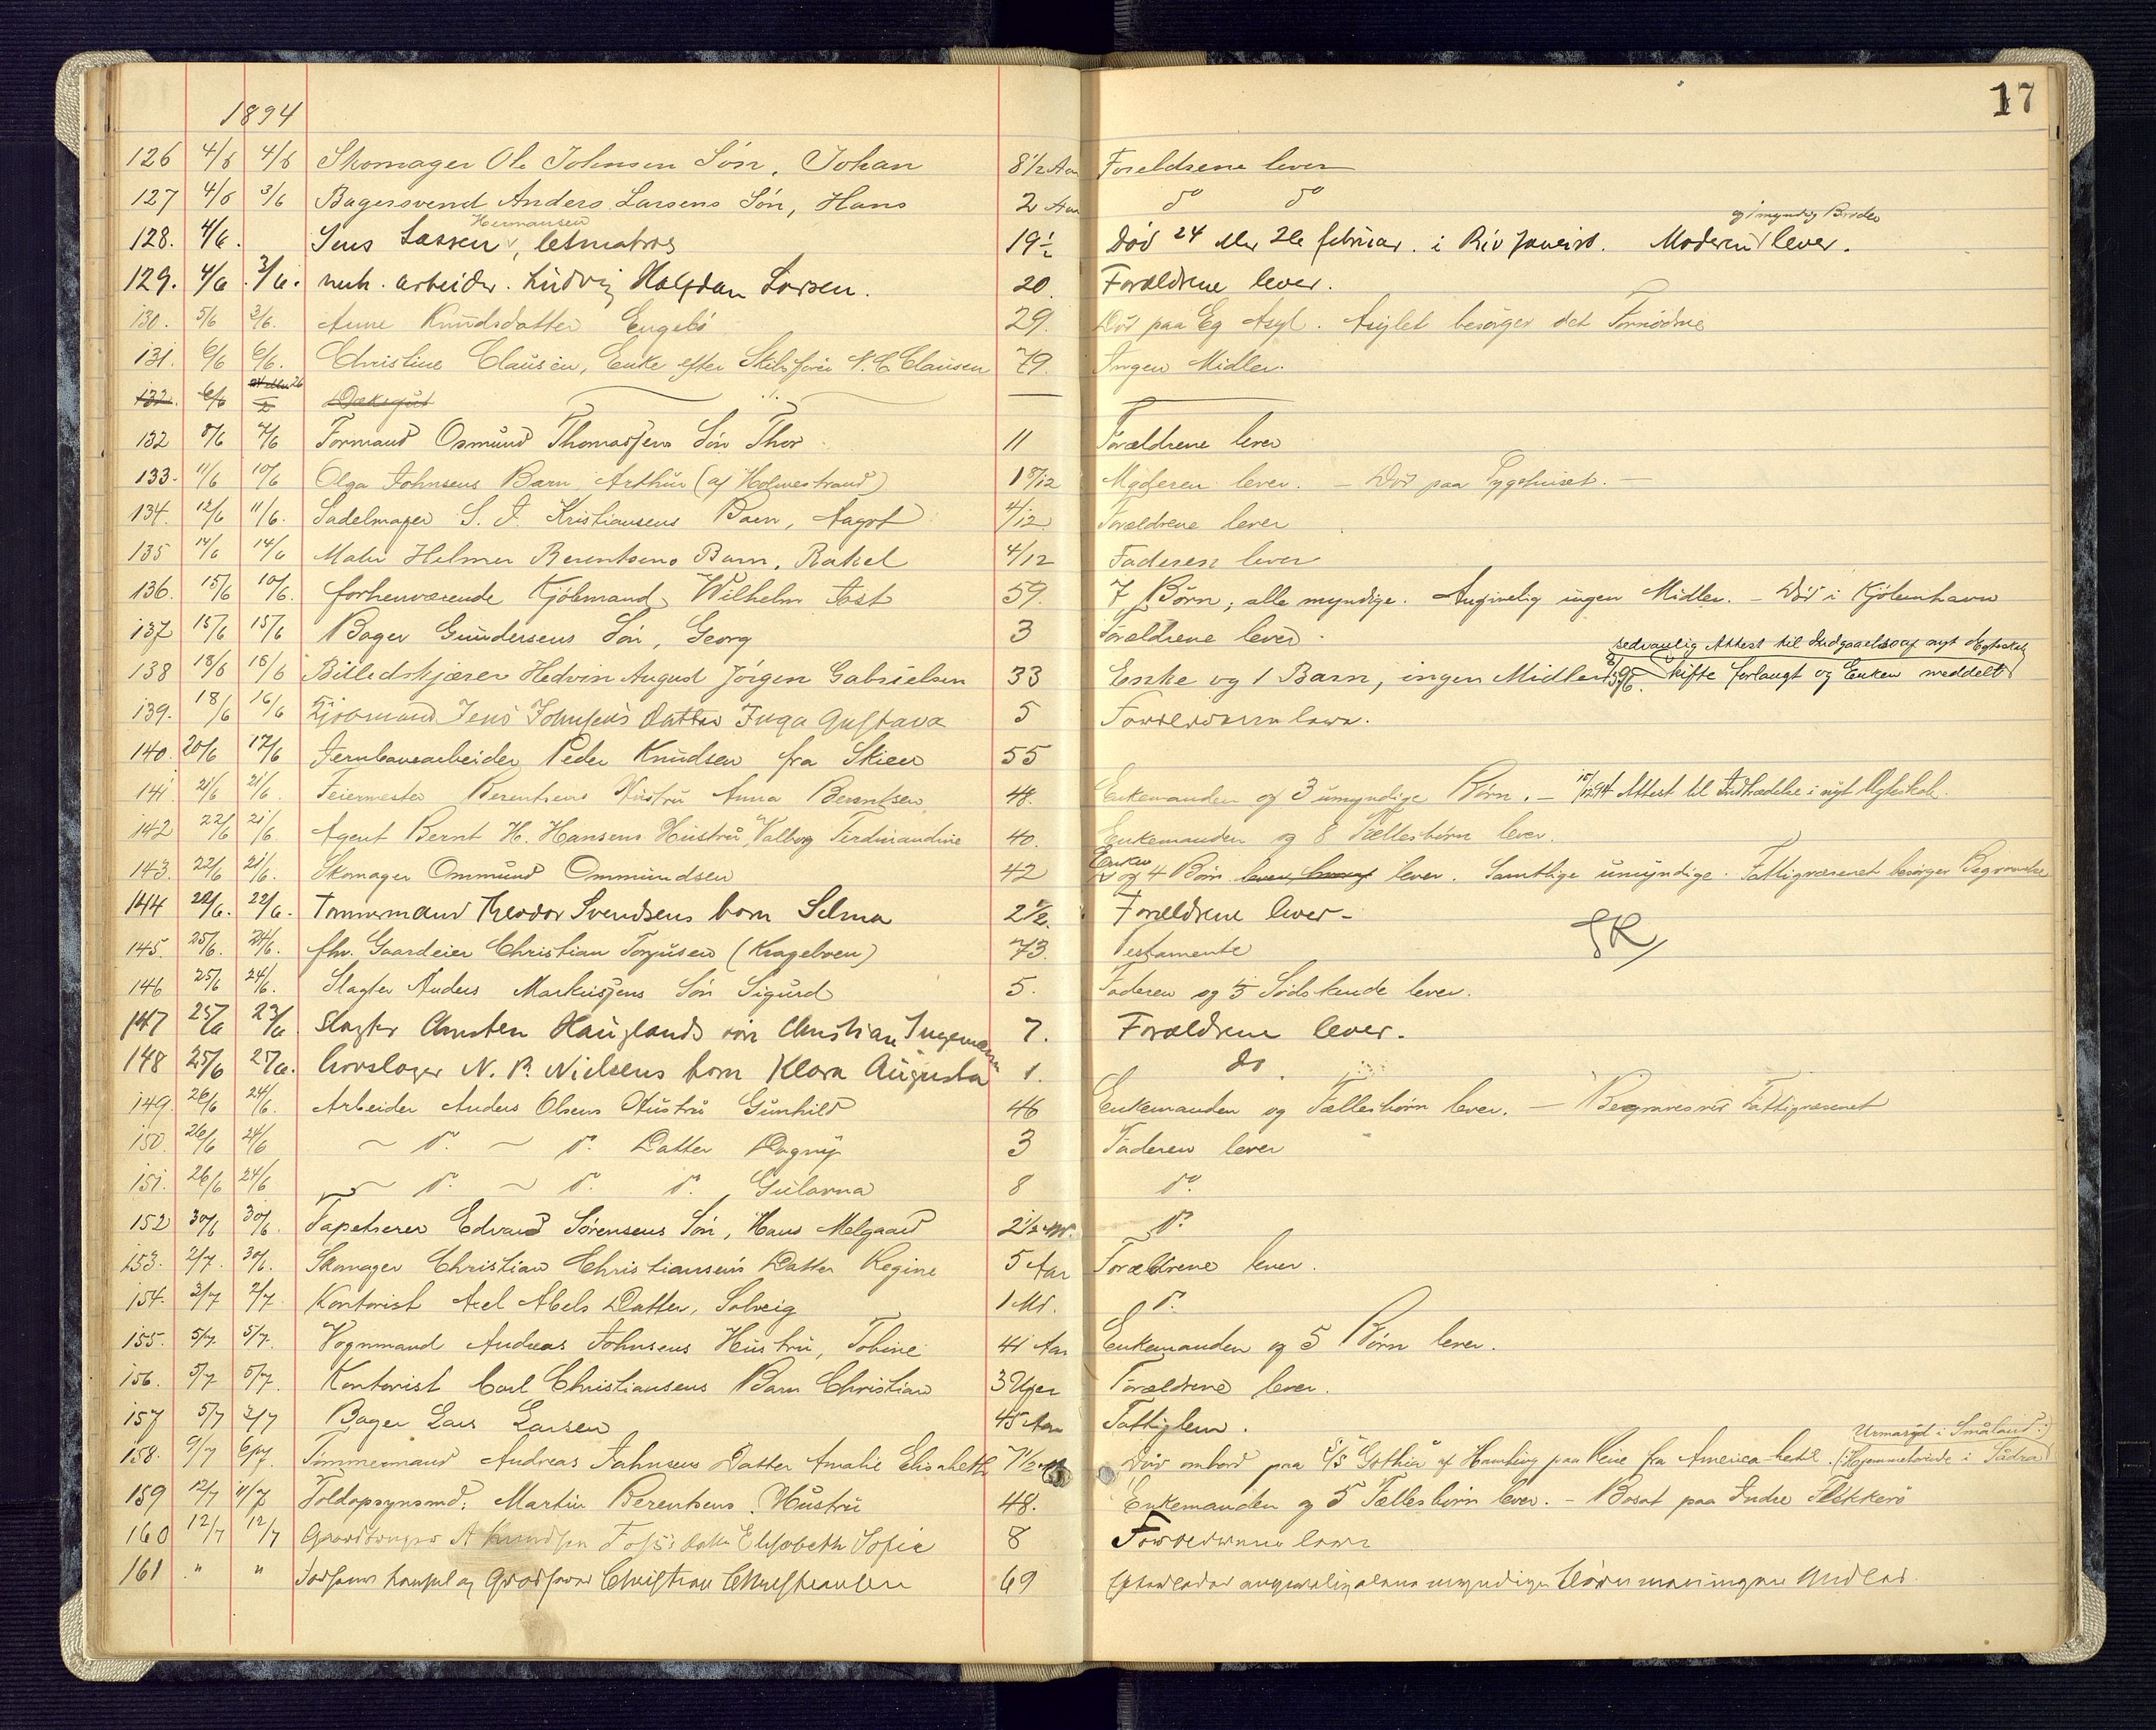 17
1894
126 4/6 4/6 Skomager Ole Johnsen Søn, Johan 8 1/2 Aar Foreldrene lever
127 4/6 3/6 Bagersvend Anders Larsens Søn, Hans 2 Aar do do
Hermansen og 1 myndig Broder
128. 4/6. Jens Lassen, letmatros 19 1/2 Død 24 eller 26 februar. i Rio Janeiro. Moderen lever.
129. 4/6 3/6. arbeider. Ludvig Halfdan Larsen. 20. Forældrene lever.
130. 5/6 3/6. Anne Knudsdatter 29. Død paa Eg Asyl. Asylet besørger det Fornødne
131. 6/6 6/6. Christine Clausen, Enke efter Skibsfører N. C. Clausen 79. Ingen Midler.
132. 6/6
132 8/6 7/6 Formand Osmund Thomassens Søn Thor 11 Forældrene lever
133. 11/6 10/6 Olga Johnsens Barn Arthur (af Holmestrand) 1 8/12 Moderen lever. – Død paa Sygehuset. –
134. 12/6 11/6. Sadelmager S. J. Kristiansens Barn, Aagot 4/12 Forældrene lever
135 14/6 14/6 Maler Helmer Berentsens Barn, Rakel 4/12 Faderen lever
136. 15/6 10/6. forhenværende Kjøbmand Wilhelm 59. 7 Børn, alle myndige. Angivelig ingen Midler. – Død i Kjøbenhavn
137 15/6 15/6 Bager Gundersens Søn, Georg 3 Forældrene lever.
sedvanlig Attest til Indgaaelse af nyt Ægteskab
138 18/6 16/6 Billedskjærer Hedvin August Jørgen Gabrielsen 33 Enke og 1 Barn, ingen Midler skifte forlangt og Enken meddelt
139. 18/6 16/6 Kjøbmand Jens Johnsens Datter Inga Gustava 5 Forældrene lever.
140. 20/6 17/6 Jernbanearbeider Peder Knudsen fra Skien 55
141. 21/6 21/6. Feiermester Berentsens Hustru Anna Berentsen 48. Enkemanden og 3 umyndige Børn. – Attest til Indtrædelse i nyt Ægteskab.
142 22/6 21/6 Agent Bernt H. Hansens Hustru, Valborg Ferdinandine 40. Enkemanden og 8 Fællesbørn lever.
143. 22/6 21/6. Skomager Ommund Ommundsen 42 Enken og 4 Børn lever. Samtlige umyndige. Fattigvæsenet besørger Begravelse
144 22/6. 22/6. Tømmermand Theodor Svendsens barn Selma 2 1/2. Forældrene lever –
145. 25/6. 24/6. fhv. Gaardeier Christian Torjusen (Kragelven) 73. Testamente
146 25/6 24/6. Slagter Anders Markussens Søn Sigurd 5. Faderen og 5 Sødskende lever.
147 25/6 23/6 Slagter Christen Hauglands søn Christian Ingemann 7. Forældrene lever.
148 25/6 25/6. hovslager N. P. Nielsens barn Klara Augusta 1. do
149. 26/6 24/6. Arbeider Anders Olsens Hustru Gunhild 46 Enkemanden og Fællesbørn lever. – Begraves ved Fattigvæsenet
150. 26/6 24/6 ~ do. ~ do. Datter Dagny 3 Faderen lever
151. 26/6 24/6 ~ do. ~ do. do. 8 do.
152 30/6 30/6. Tapetserer Edvard Sørensens Søn, Hans Melgaard 2 1/2 Md. do.
153. 2/7. 30/6. Skomager Christian Christiansens Datter Regine 5 Aar Forældrene lever.
154. 3/7 2/7 Kontorist Axel Abels Datter, Solveig 1 Md. do.
155. 5/7. 5/7. Vognmand Andreas Johnsens Hustru, Tobine 41 Aar Enkemanden og 5 Børn lever.
156. 5/7 5/7. Kontorist Carl Christiansens Barn Christian 3 Uger Forældrene lever.
157 5/7 3/7 Bager Lars Larsen 45 Aar Fattiglem.
i Småland:)
158. 9/7 6/7. Tømmermand Andreas Jahnsens Datter Amalie Elisabeth 7 1/2 Død ombord paa S/S Gothia af Hamburg paa Reise fra America (:Hjemmehørende i Södra
159 12/7 11/7 Toldopsynsmd. Martin Berentsens Hustru 48. Enkemanden og 5 Fællesbørn lever. – Bosat paa Indre Flekkerø
160 12/7 12/7 A Knudsen Datter Elisabeth Sofie 8 Forældrene lever
161 " " Christian Christensen 69 Efterlader angivelig myndige Børn ingen Midler.